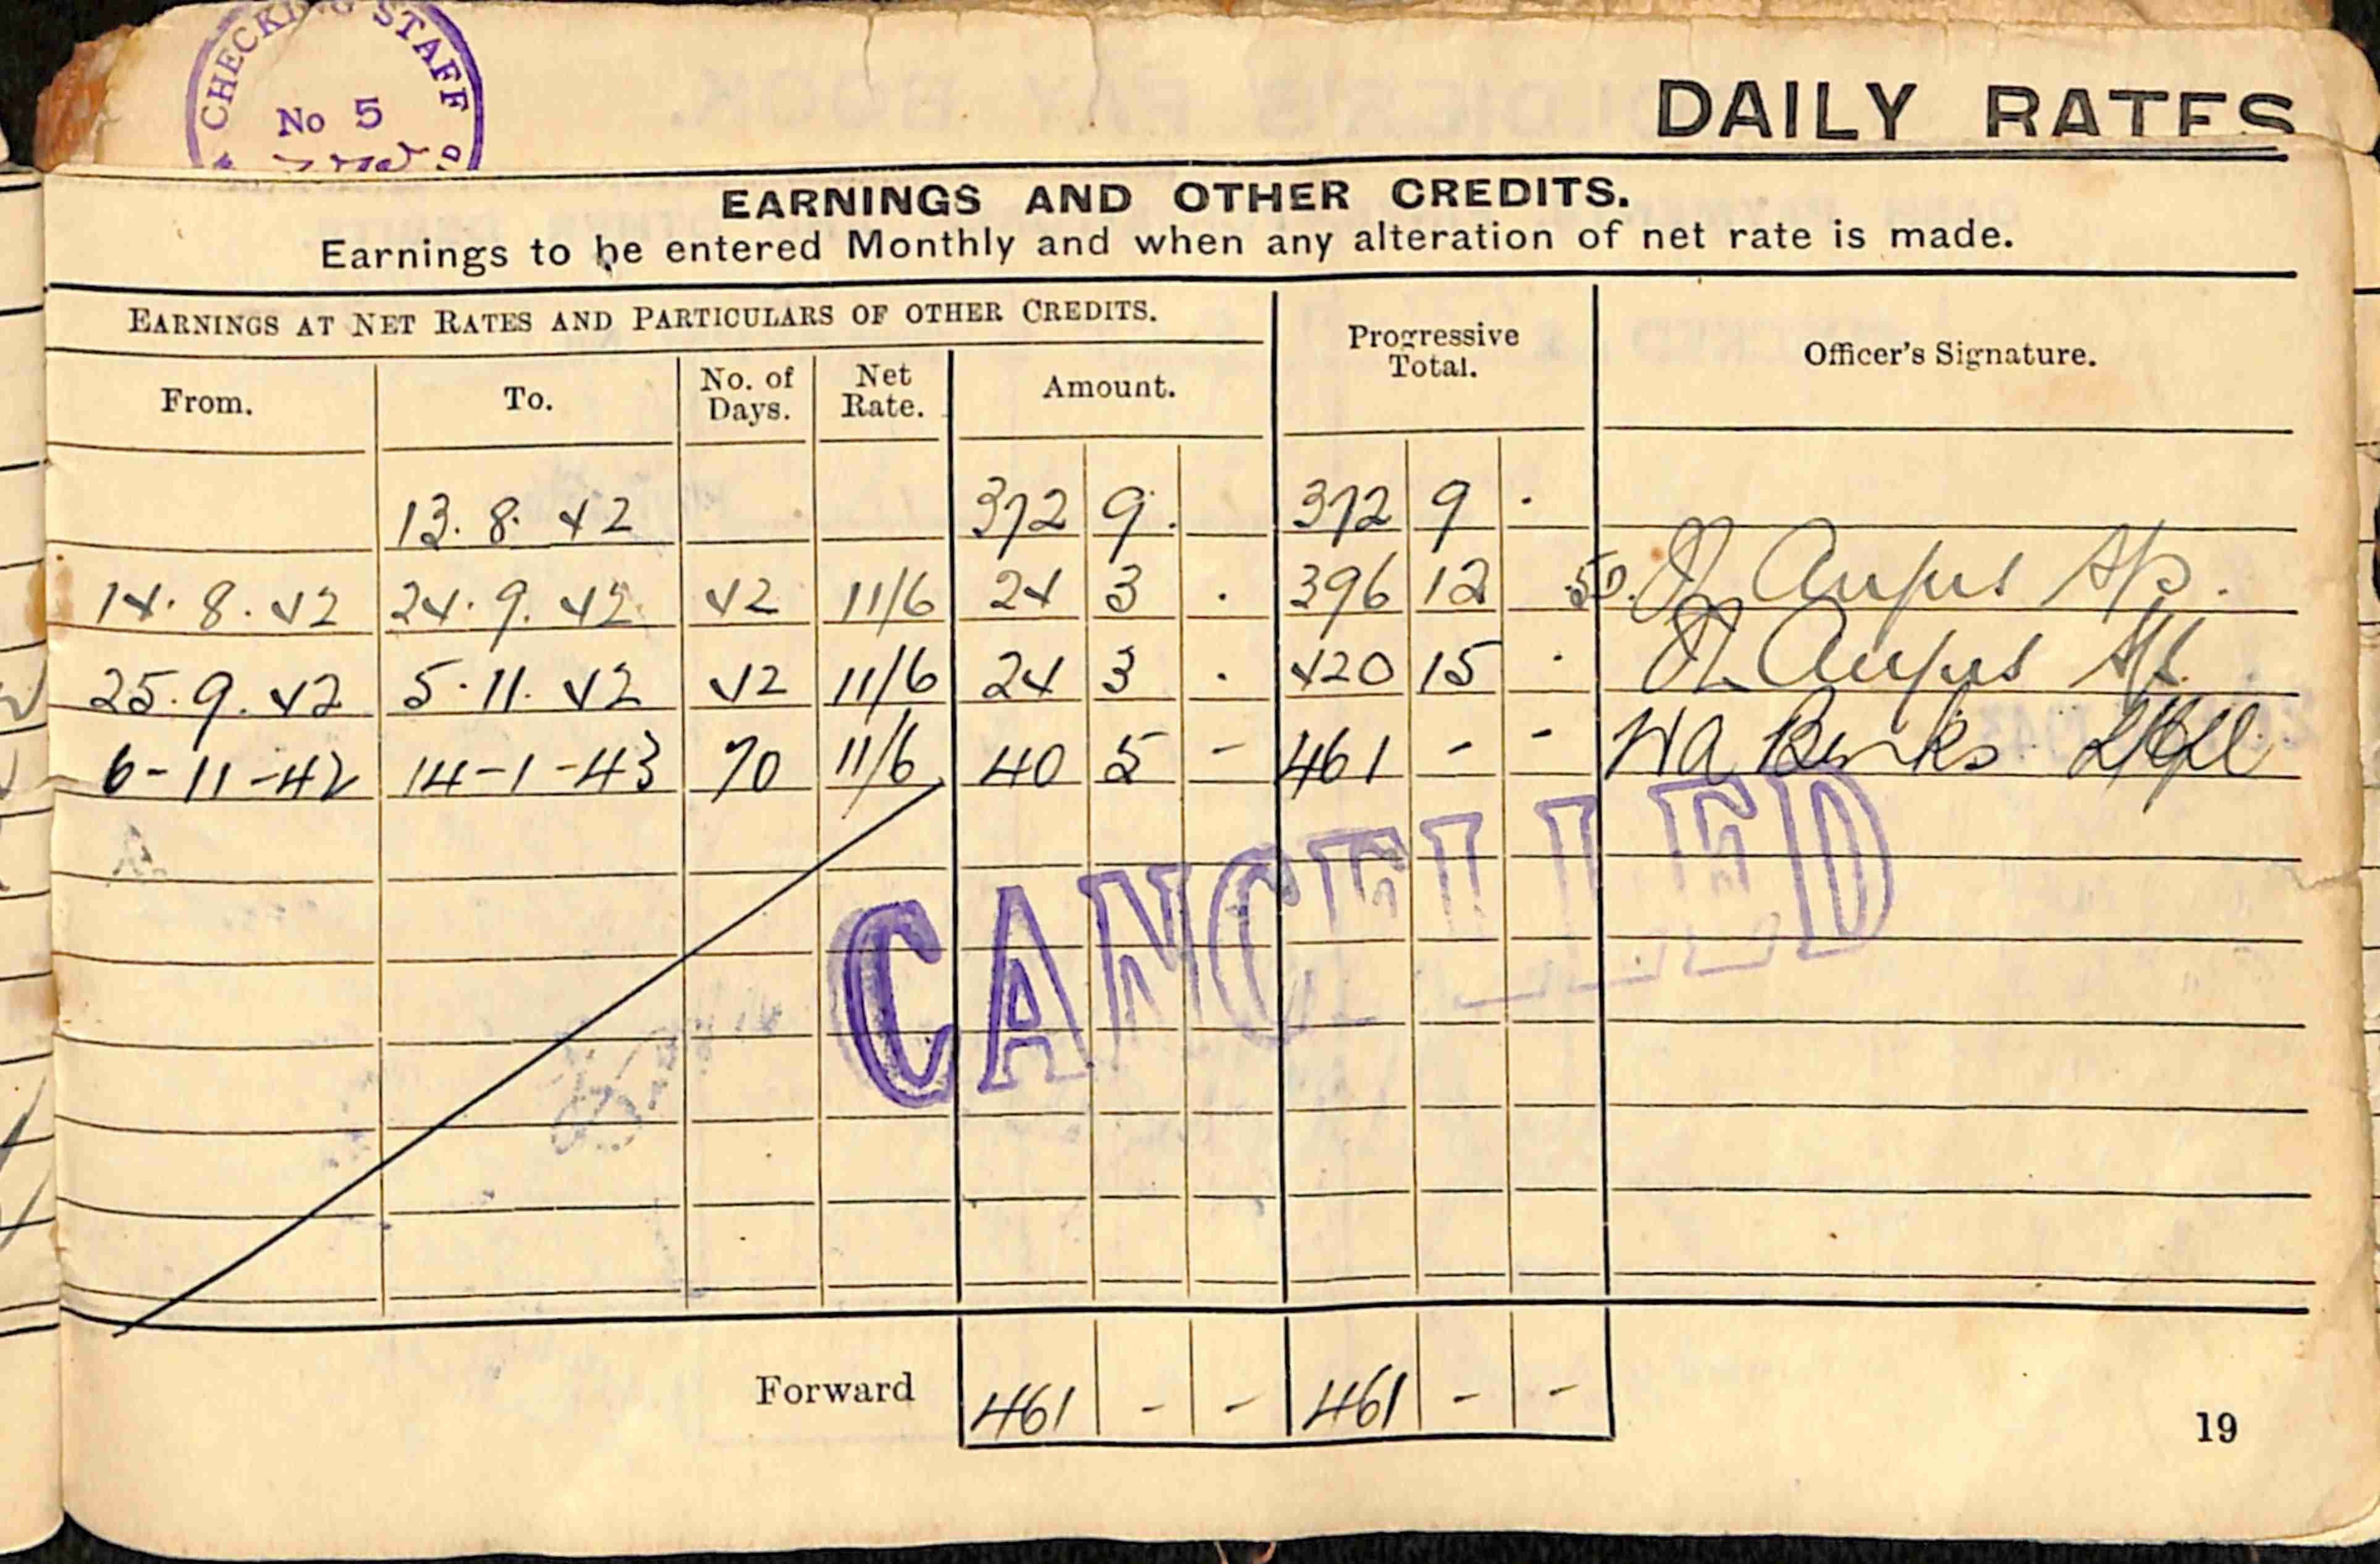 CHECKING STAFF
No 5
DAILY RATES
EARNINGS AND OTHER CREDITS.
Earnings to be entered Monthly and when any alteration of net rate is made.
EARNINGS AT NET RATES AND PARTICULARS OF OTHER CREDITS. Progressive Total. Officer's Signature.
From. To. No. of Days. Net Rate. Amount.
13. 8. 42 372 9. 372 9 .
14. 8. 42 24. 9. 42 42 11/6 24 3 . 396 12
25. 9. 42 5. 11. 42 42 11/6 24 3 . 420 15 .
6-11-42 14-1-43 70 11/6 40 5 - 461 - - WA
CANCELLED
Forward 461 - - 461 - -
19